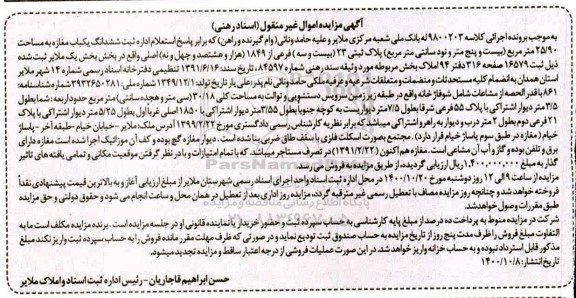 آگهی مزایده اموال غیر منقول (اسناد رهنی)
به موجب پرونده اجرائی کلاسه ۹۸۰۰۲۰۳ له بانک ملی شعبه مرکزی ملایر و علیه حامد ونائی (وام گیرنده و راهن) که برابر پاسخ استعلام اداره ثبت ششدانگ یکباب مغازه به مساحت
۲۵/۹۰ متر مربع (بیست و پنج متر و نود سانتی متر مربع) پلاک ثبتی ۲۳ (بیست و سه) فرعی از ۱۸۴۹ (هزار و هشتصد و چهل و نه) اصلی واقع در بخش یک ملایر ثبت شده
ذیل ثبت ۱۶۵۷۹ صفحه ۳۱۶ دفتر ۹۴ املاک بخش مربوطه مورد وثیقه سند رهنی شماره ۸۴۵۹۷، تاریخ سند: ۱۳۹۶/۶/۱۶ تنظیمی دفترخانه اسناد رسمی شماره ۱۴ شهر ملایر
استان همدان به انضمام کلیه مستحدثات و منضمات و متعلقات آن ملکی حامد ونائی نام پدر: علی یار تاریخ تولد: ۱۳۴۹/۱۲/۱ شماره ملی: ۳۹۳۲۶۵۰۲۸۱ شماره شناسنامه:
۸۶۱ باقدرالحصه از مشاعات شامل شوفاژخانه واقع در طبقه زیرزمین و سرویس دستشویی و توالت به مساحت کلی ۳۰/۱۸ (سی متر و هجده سانتی) متر مربع حدود اربعه: شمالا بطول
۳/۵ متر دیوار اشتراکی با پلاک ۵۵ فرعی شرقا بطول ۷/۵ متر دیواریست به کوچه جنوبا بطول ۳/۵۵ متر دیوار اشتراکی با ۱۸۵۰ اصلی غربا اول بطول ۵/۲۵ متر دیوار اشتراکی با پلاک
۲۱ فرعی دوم بطول ۲ متر درب و دیوار به راهرو اشتراکی میباشد که برابر نظریه کارشناس رسمی دادگستری مورخ ۱۳۹۹/۲/۲۲ آدرس ملک: ملایر - خیابان خیام - طبقه آخر - پاساژ
خیام (مغازه در طبق سوم پاساژ خیام قرار دارد). مجتمع بصورت اسکلت فلزی با سقف طاق ضربی بنا شده است. دیوار مغازه گچ بوده و کف آن موزائیک اجرا شده است مغازه دارای
برق و تلفن بوده و گاز و آب آن مشاعی است. مغازه هم اکنون (۱۳۹۹/۲/۲۲) در تصرف مستاجر میباشد که با تمام امتیازات و با در نظر گرفتن موقعیت مکانی و تمامی یافته های تاثیر
گذار به مبلغ ۱.۴۰۰.۰۰۰.۰۰۰ ریال ارزیابی گردیده، از طریق مزایده به فروش می رسد.
مزایده از ساعت ۹ الی ۱۲ روز دوشنبه مورخ ۱۴۰۰/۱۰/۲۰ در محل اداره ثبت اسناد واحد اجرای اسناد رسمی شهرستان ملایر از مبلغ ارزیابی آغاز و به بالاترین قیمت پیشنهادی نقدا
فروخته خواهد شد و چنانچه روز مزایده مصادف با تعطیل رسمی غیر مترقبه گردد، مزایده روز اداری بعد از تعطیل در همان محل و ساعت انجام می شود و حقوق دولتی و حق مزایده
طبق مقررات وصول خواهد شد.
شرکت در مزایده منوط به پرداخت ده درصد از مبلغ پایه کارشناسی به حساب سپرده ثبت و حضور خریدار یا نماینده قانونی او در جلسه مزایده است. برنده مزایده مکلف است ما به
التفاوت مبلغ فروش را ظرف مدت پنج روز از تاریخ مزایده به حساب صندوق ثبت تودیع نماید و در صورتی که ظرف مهلت مقرر مانده فروش را به حساب سپرده ثبت واریز نکند مبلغ
مذکور قابل استرداد نبوده و به حساب خزانه واریز خواهد شد. در این صورت عملیات فروش از درجه اعتبار ساقط و مزایده تجدید میشود.
تاریخ انتشار: ۱۴۰۰/۱۰/۸
حسن ابراهیم قاجاریان - رئیس اداره ثبت اسناد و املاک ملایر